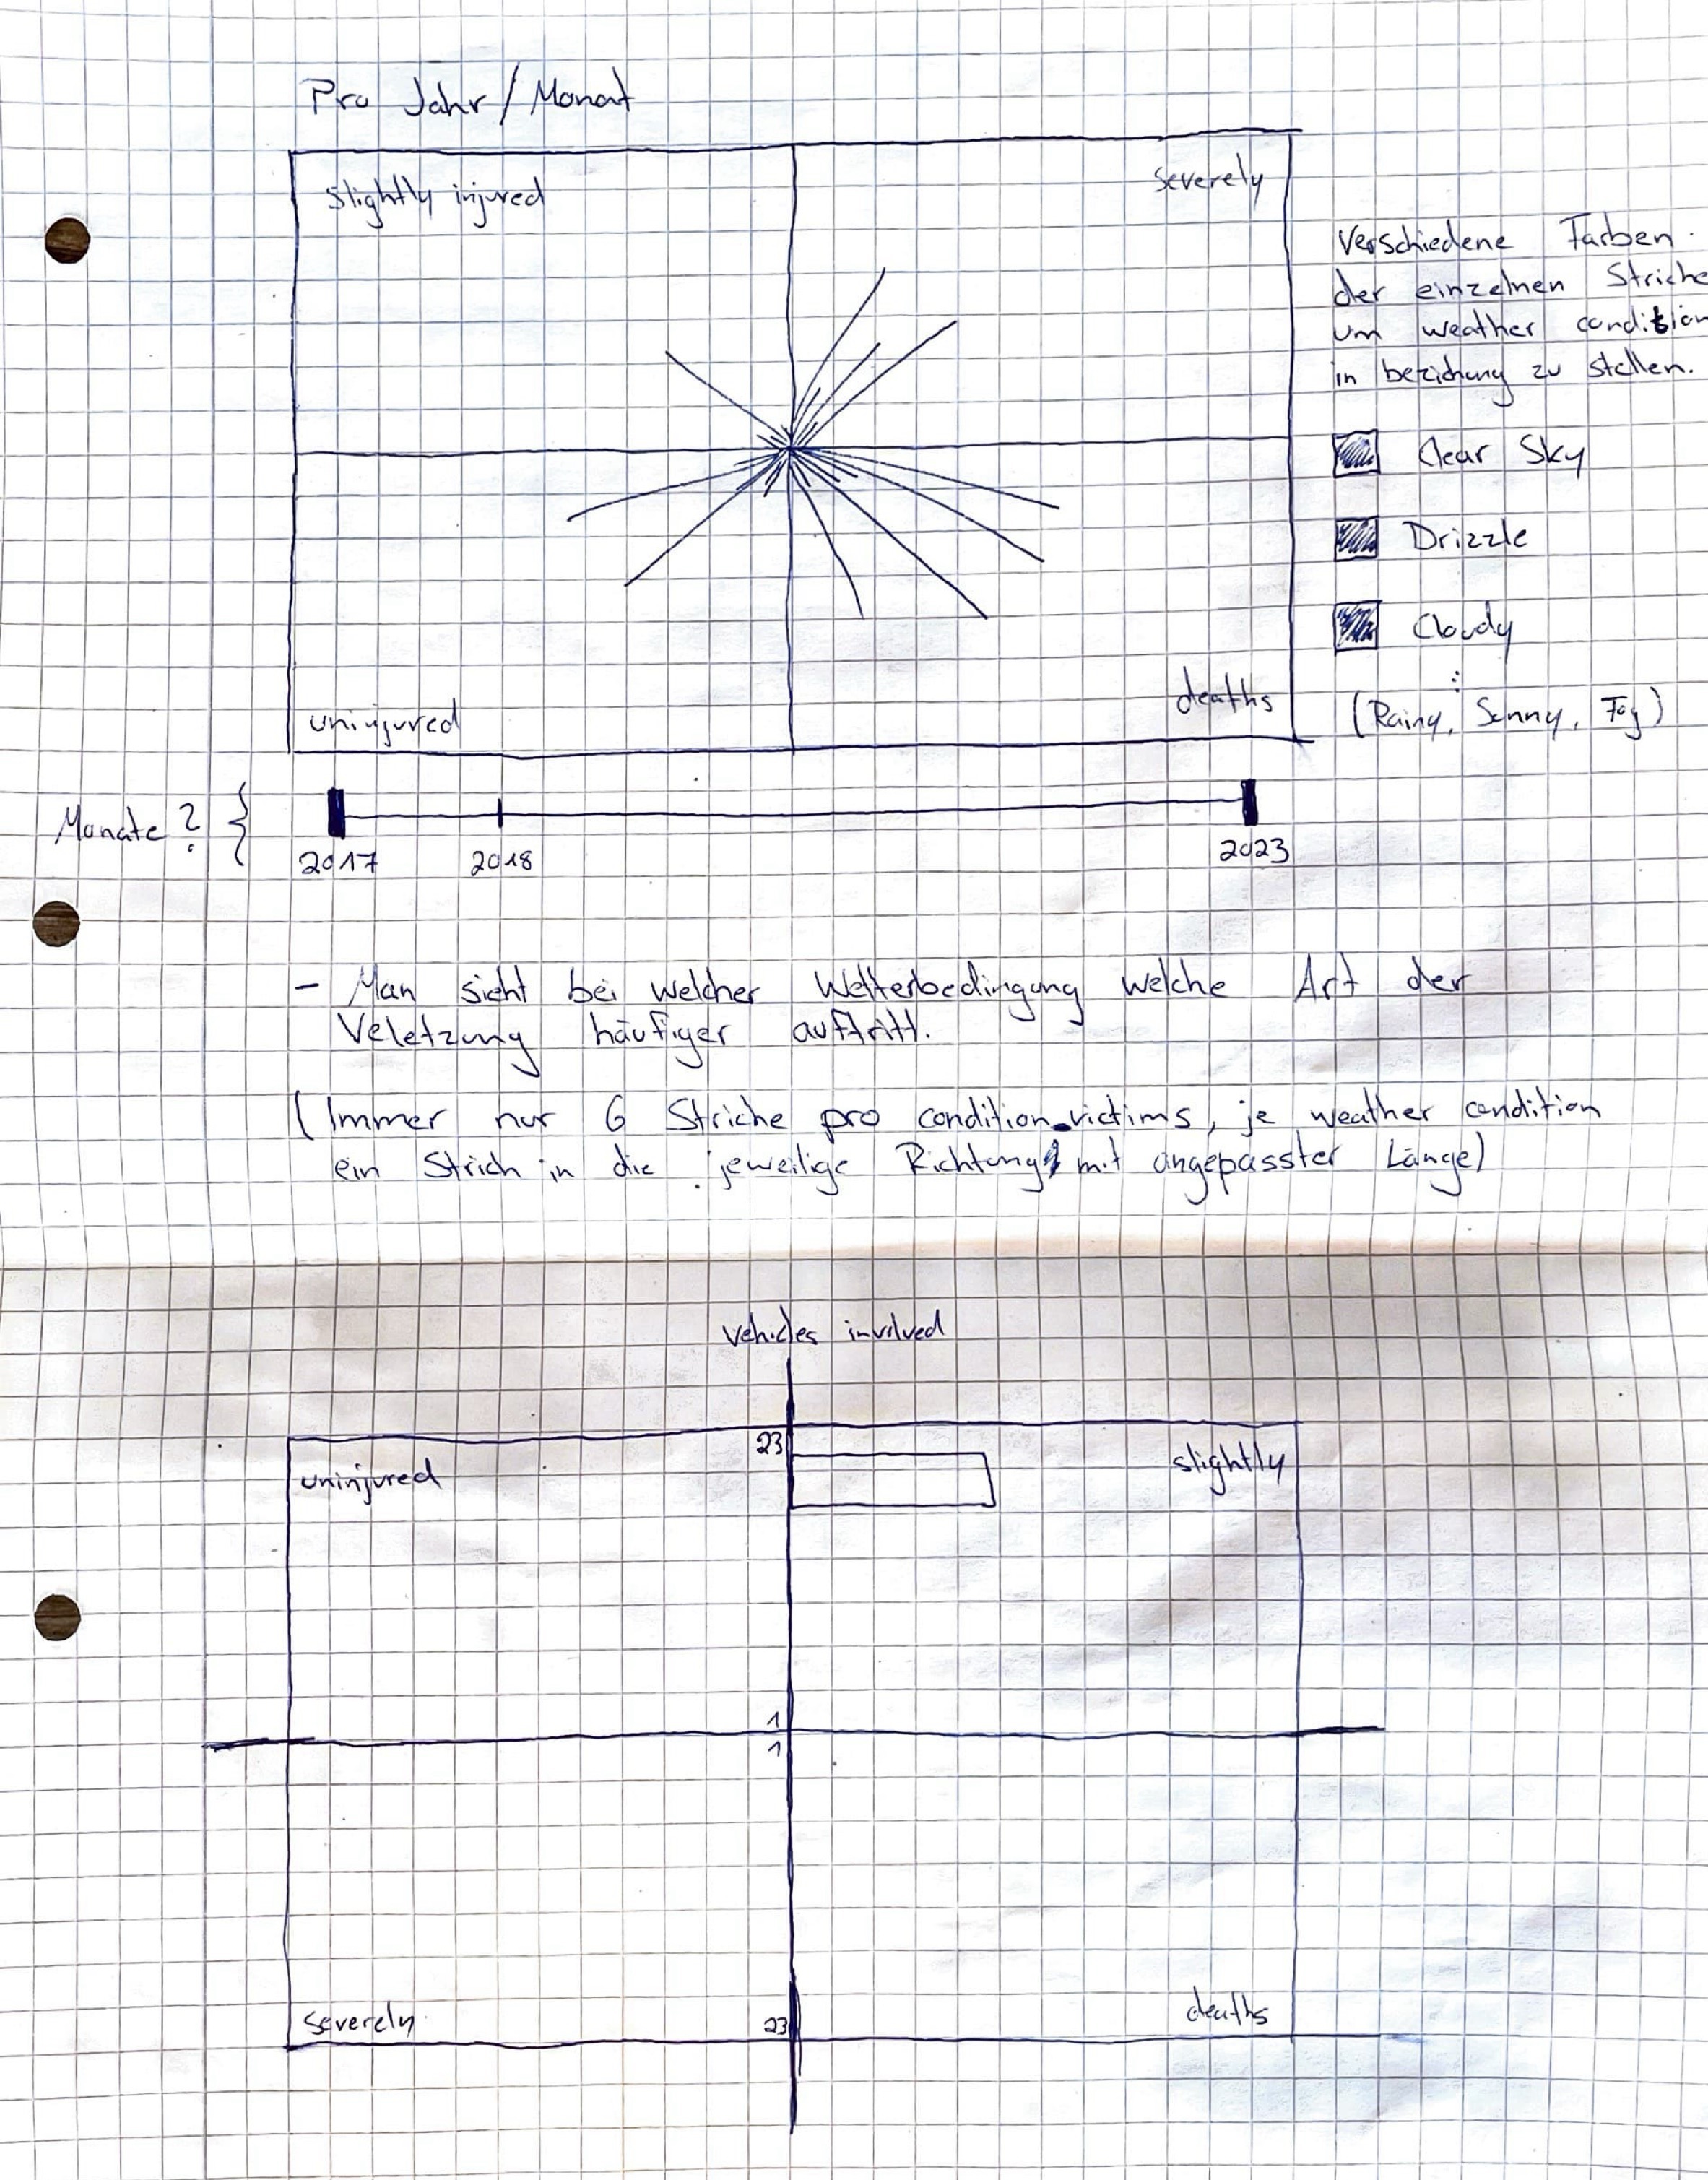 Pro Jahr / Monat
slightly injured
severely
Verschiedene Farben
der einzelnen Striche
um weather condition
in beziehung zu stellen.
Clear Sky
Drizzle
Cloudy
(Rainy, Sunny, Fog)
uninjured
deaths
Monate?
2017
2018
2023
- Man sieht bei welcher Wetterbedingung welche Art der
Veletzung häufiger auftritt.
(Immer nur 6 Striche pro condition_victims, je weather condition
ein Strich in die jeweilige Richtung mit angepasster Länge)
vehicles involved
23
uninjured
slightly
1
1
severely
23
deaths